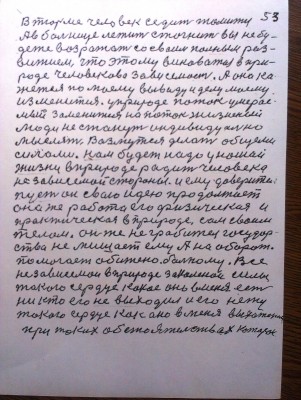 53
В тюрме человек седит томиту
А в болнице лежит стогнит вы не бу-
дете возражат со своим полным раз-
витием, что этому виноватая в при-
роде человекова зависемост. А оно ка-
жется по моему выводу и делу моему.
изменится. у природе поток умерае-
мый заменится на поток жизненый
люди не станут индивидуално
мыслят. Возмутся делат общеми
силами. Нам будет надо у нашой
жизни в природе родит человека
не зависемой стороны. и ему доверит:
пуст он сваю идею продолжает
она же работа его физическая и
практическая в природе, сам своим
телом. он же не грабител государ-
ства не мищает ему А на оборот.
помогает обижено, болному. Все
независемой в природе законное силы
такого сердце какое оно в меня ест
ни кто его не выходил и его нету
такого сердце как оно в меня
при таких обстоятелствах которое